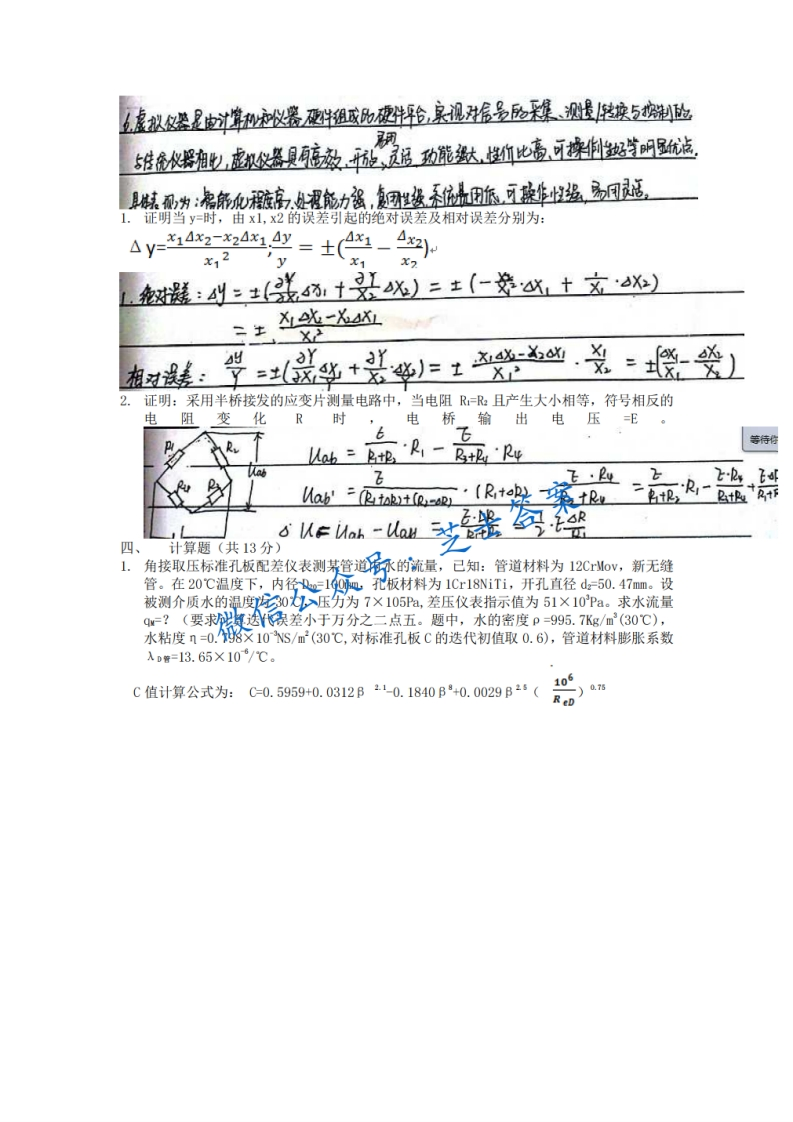 6.虚拟仪器是由计算机和仪器硬件组成的硬件平台,实现对信号的采集、测量/转换与控制的
与传统仪器相比,虚拟仪器具有高效、开放、易用灵活、功能强大、性价比高、可操作性好等明显优点.
具体表现为:智能化程度高、处理能力强,复用性强、系统费用低、可操作性强、易用灵活。
1. 证明当 y=时, 由 x1,x2 的误差引起的绝对误差及相对误差分别为:
Δy=(x₁Δx₂−x₂Δx₁)/x₁²;Δy/y=±(Δx₁/x₁−Δx₂/x₂)
1.绝对误差:Δy=±(∂Y/∂X₁ Δx₁+∂Y/X₂ ΔX₂)=±(−X₂/X₁²·ΔX₁+1/X₁·ΔX₂)
=±(X₁ΔX₂−X₂ΔX₁)/X₁²
相对误差:ΔY/Y=±(∂Y/∂X₁ ΔX₁/Y+∂Y/X₂·ΔX₂/Y)=±(X₁ΔX₂−X₂ΔX₁)/X₁²·X₁/X₂=±(ΔX₁/X₁−ΔX₂/X₂)
2. 证明:采用半桥接发的应变片测量电路中,当电阻 R₁=R₂ 且产生大小相等,符号相反的
电阻变化 R 时,电桥输出电压=E。
等待你
R₁ R₂ Uab R₄ R₃
Uab=E/(R₁+R₂)·R₁−E/(R₃+R₄)·R₄
Uab'=E/((R₁+ΔR)+(R₂−ΔR))·(R₁+ΔR)−E·R₄/(R₃+R₄)=E/(R₁+R₂)·R₁−E·R₄/(R₃+R₄)+
ΔU=Uab'−Uab=E·ΔR/(R₁+R₂)=1/2·E ΔR/R₁
微信公众号:芝士答案
四、 计算题(共 13 分)
1. 角接取压标准孔板配差仪表测某管道内水的流量,已知:管道材料为 12CrMov,新无缝
管。在 20℃温度下,内径 D₂₀=100mm,孔板材料为 1Cr18NiTi,开孔直径 d₂=50.47mm。设
被测介质水的温度为 30℃,压力为 7×105Pa,差压仪表指示值为 51×10³Pa。求水流量
qM=?(要求计算迭代误差小于万分之二点五。题中,水的密度ρ=995.7Kg/m³(30℃),
水粘度η=0.798×10⁻³NS/m²(30℃,对标准孔板 C 的迭代初值取 0.6),管道材料膨胀系数
λD管=13.65×10⁻⁶/℃。
C 值计算公式为: C=0.5959+0.0312β²·¹-0.1840β⁸+0.0029β²·⁵(10⁶/ReD)⁰·⁷⁵